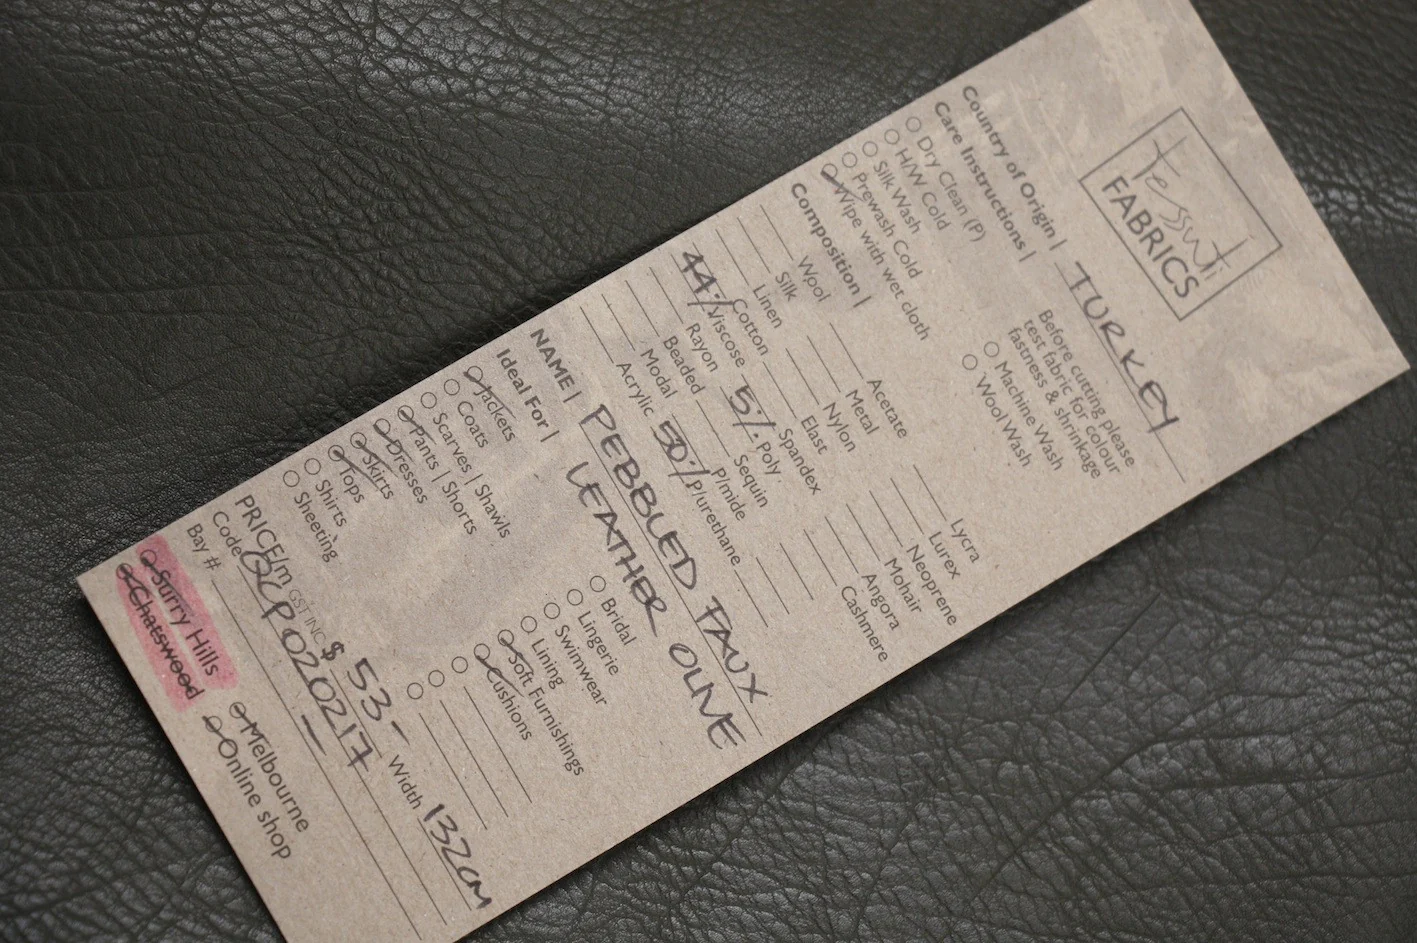 tessuti
FABRICS
Country of Origin | TURKEY
Care Instructions |
Before cutting please
test fabric for colour
fastness & shrinkage
Dry Clean (P)
H/W Cold
Silk Wash
Prewash Cold
Wipe with wet cloth
Machine Wash
Wool Wash
Composition |
Wool
Silk
Linen
Cotton
44% Viscose
Rayon
Beaded
Modal
Acrylic
Acetate
Metal
Nylon
Elast
Spandex
5% Poly
Sequin
P/mide
50% P/urethane
Lycra
Lurex
Neoprene
Mohair
Angora
Cashmere
NAME | PEBBLED FAUX
LEATHER OLIVE
Ideal For |
Jackets
Coats
Scarves | Shawls
Pants | Shorts
Dresses
Skirts
Tops
Shirts
Sheeting
Bridal
Lingerie
Swimwear
Lining
Soft Furnishings
Cushions
PRICE/m GST INC $ 53- Width 132cm
Code QLP020217
Bay # -
Surry Hills
Chatswood
Melbourne
Online shop